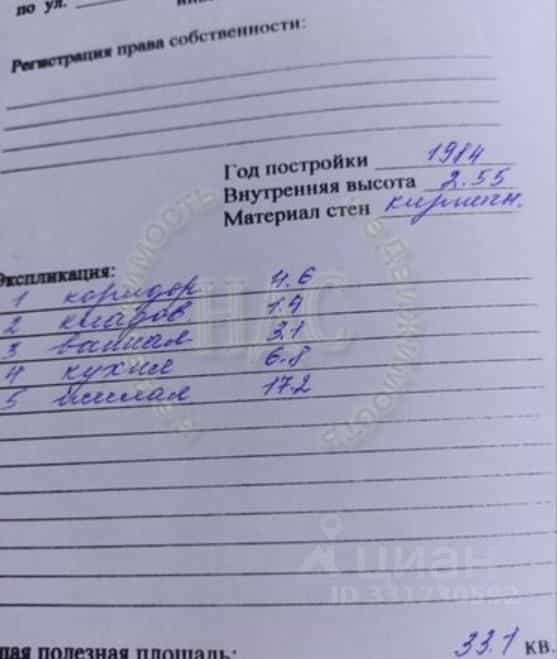 по ул.
Регистрация права собственности:
Год постройки 1984
Внутренняя высота 2.55
Материал стен кирпичн.
Экспликация:
1 коридор 4.6
2 кладов 1.4
3 ванная 3.1
4 кухня 6.8
5 жилая 17.2
НДС
недвижимость
ЦИАН
полезная площадь: 33.1 кв.